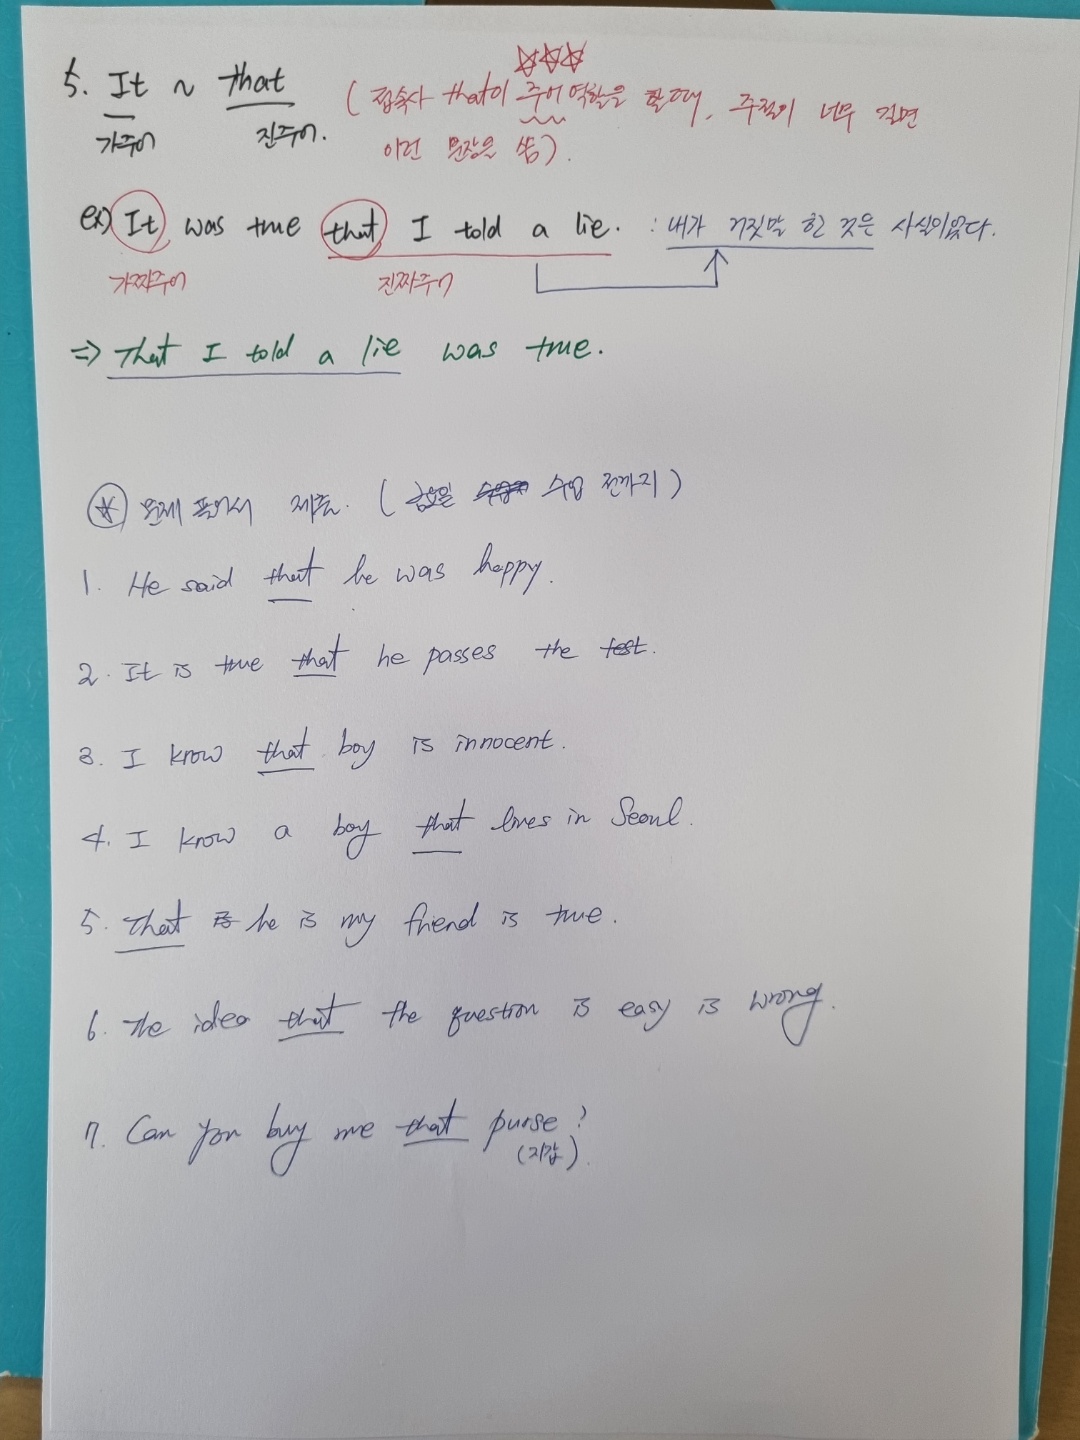 5. It ~ that (접속사 that이 주어 역할을 할 때, 주절이 너무 길면
가주어 진주어. 이런 문장을 씀).
ex) It was true that I told a lie. : 내가 거짓말 한 것은 사실이었다.
가짜주어 진짜주어
=> That I told a lie was true.
문제 풀어서 제출. (금요일 수업 전까지)
1. He said that he was happy.
2. It is true that he passes the test.
3. I know that boy is innocent.
4. I know a boy that lives in Seoul.
5. That he is my friend is true.
6. The idea that the question is easy is wrong.
7. Can you buy me that purse?
(지갑).